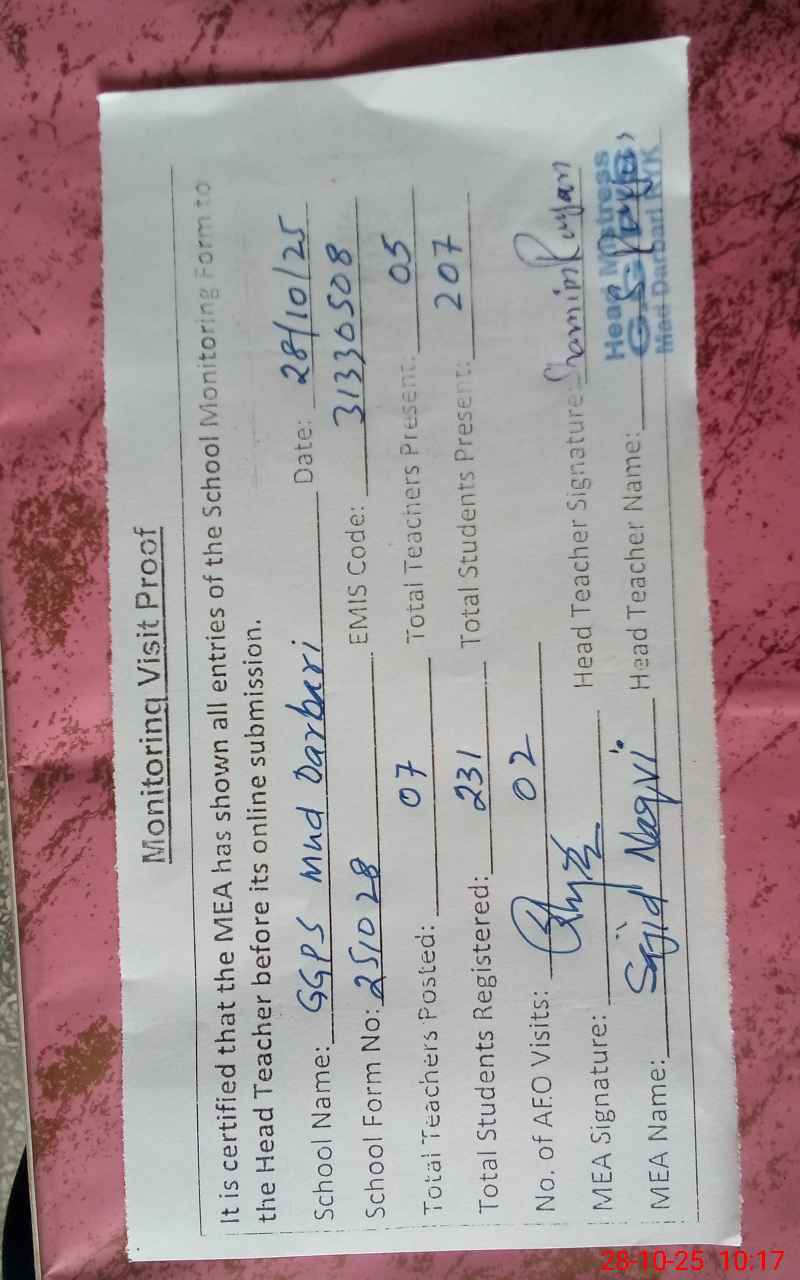 Monitoring Visit Proof
It is certified that the MEA has shown all entries of the School Monitoring Form to
the Head Teacher before its online submission.
School Name: GGPS Mud Darbari Date: 28/10/25
School Form No: 251028 EMIS Code: 31330508
Total Teachers Posted: 07 Total Teachers Present: 05
Total Students Registered: 231 Total Students Present: 207
No. of AEO Visits: 02
MEA Signature: Head Teacher Signature: Shamim
MEA Name: Sajid Naqvi Head Teacher Name:
Head Mistress
Darbari RYK
28-10-25 10:17